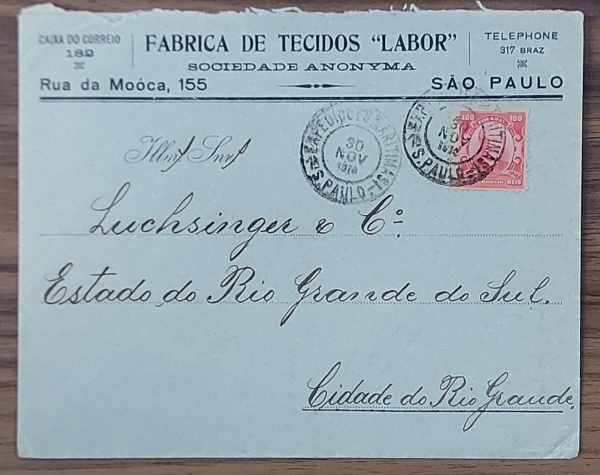 CAIXA DO CORREIO
182
FABRICA DE TECIDOS "LABOR"
SOCIEDADE ANONYMA
TELEPHONE
317 BRAZ
Rua da Moóca, 155
SÃO PAULO
30
NOV
S. PAULO
NOV
S. PAULO
100 100
REIS
Illmos Snrs
Luchsinger & Cº.
Estado do Rio Grande do Sul.
Cidade do Rio Grande,